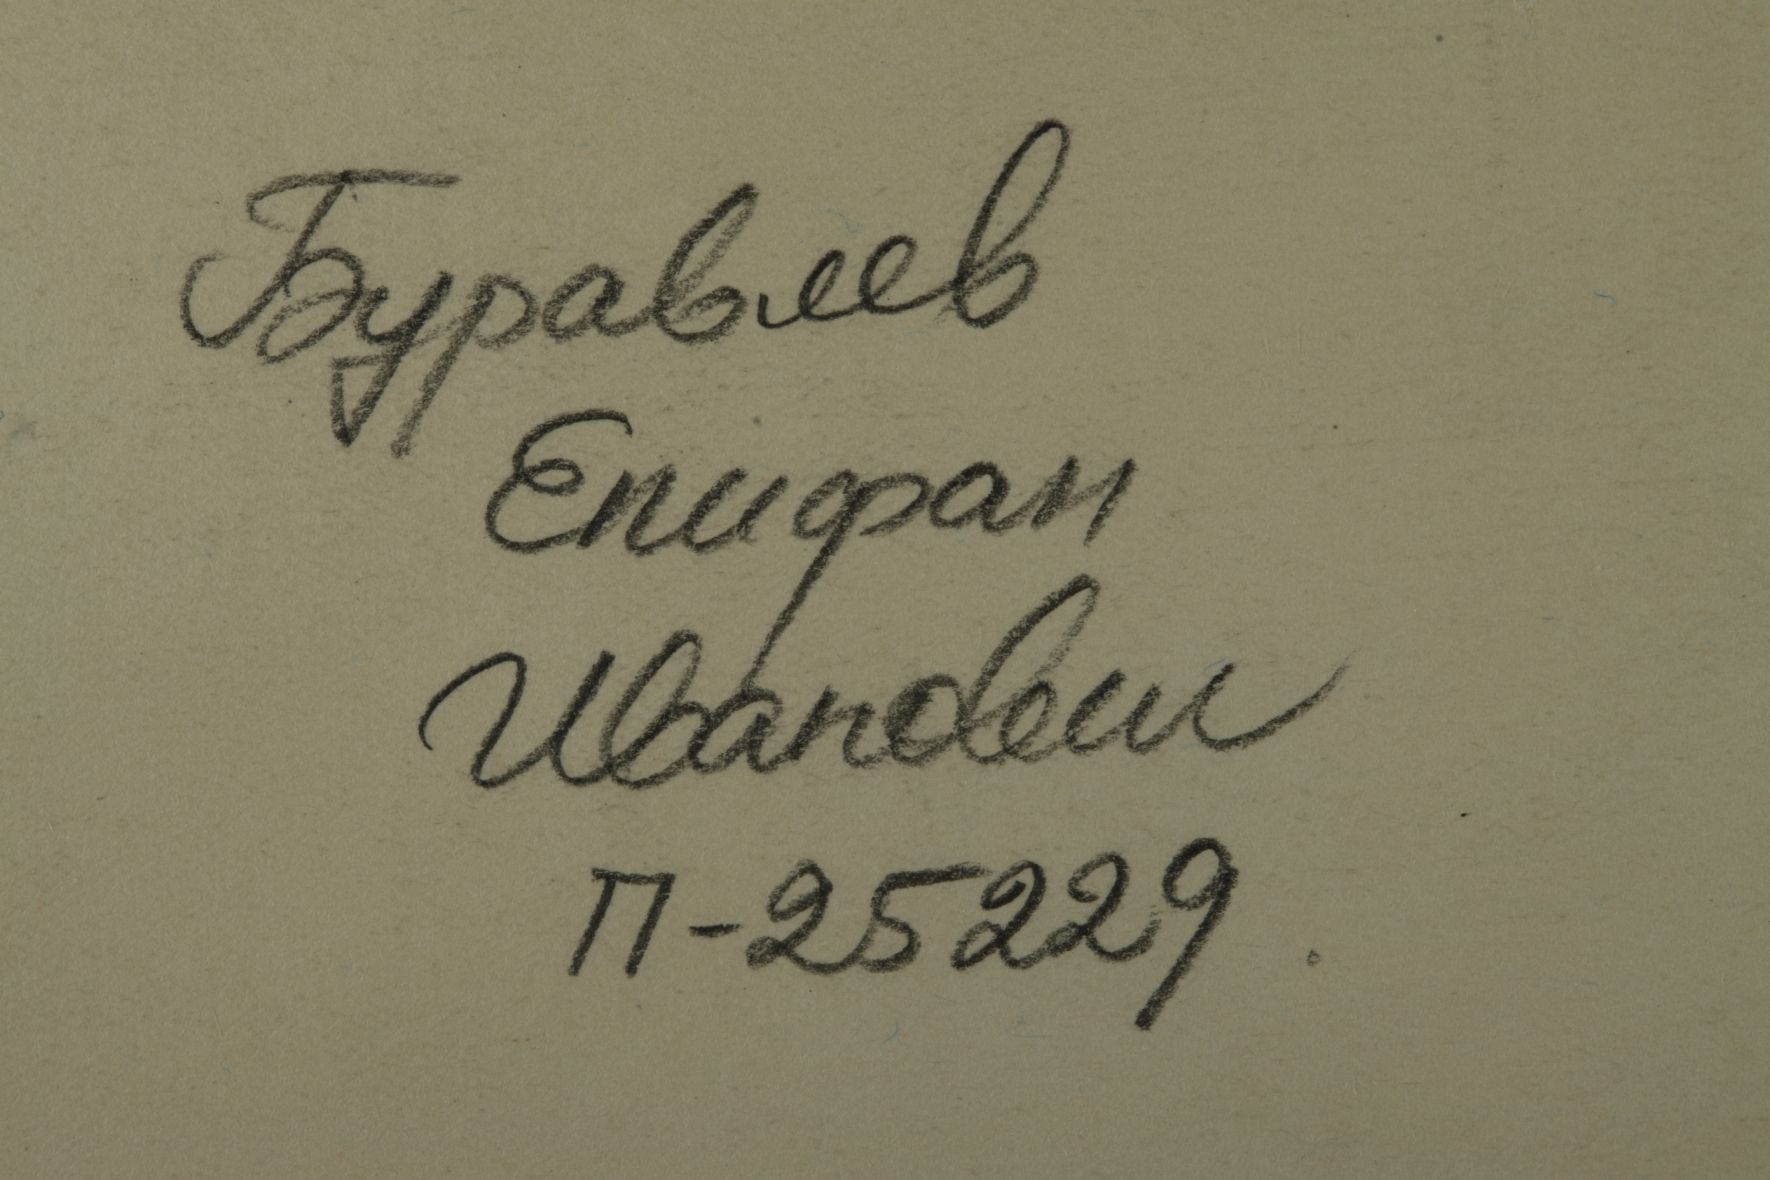 Буравлев
Епифан
Иванович
П-25229.